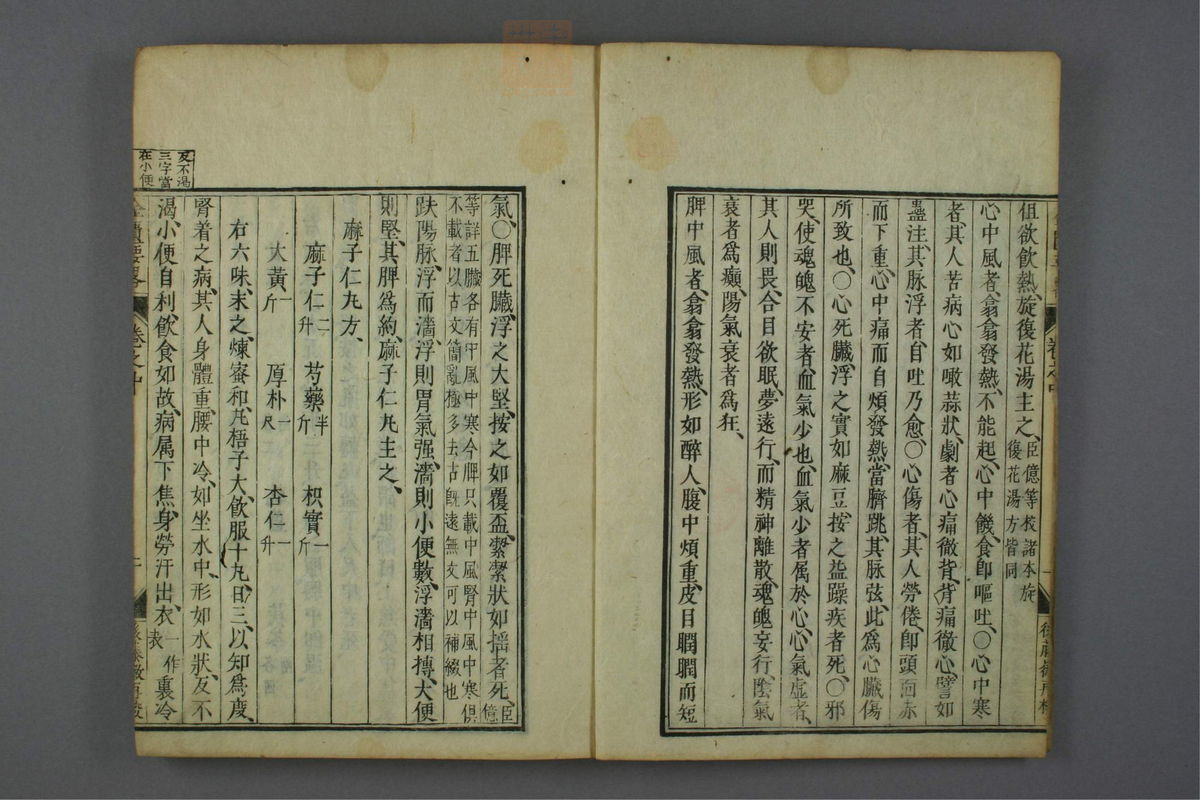 但欲飲熱、旋復花湯主之、臣億等校諸本旋
復花湯方皆同
心中風者、翕翕發熱、不能起、心中饑、食卽嘔吐、〇心中寒
者、其人苦病心如噉蒜狀、劇者心痛徹背、背痛徹心、譬如
蠱注、其脉浮者、自吐乃愈、〇心傷者、其人勞倦卽頭面赤
而下重、心中痛而自煩發熱、當臍跳、其脉弦、此爲心臟傷
所致也、〇心死臟、浮之實如麻豆、按之益躁疾者死、〇邪
哭、使魂魄不安者、血氣少也、血氣少者属於心、心氣虛者、
其人則畏、合目欲眠、夢遠行、而精神離散、魂魄妄行、陰氣
衰者爲癲、陽氣衰者爲狂、
脾中風者、翕翕發熱、形如醉人、腹中煩重、皮目瞤瞤而短
氣、〇脾死臟、浮之大堅、按之如覆盃、絜絜狀如揺者死、臣億
等詳五臟各有中風中寒今脾只載中風腎中風中寒俱
不載者以古文簡亂極多去古旣遠無文可以補綴也
趺陽脉、浮而濇、浮則胃氣强、濇則小便數、浮濇相摶、大便
則堅、其脾爲約、麻子仁丸主之、
麻子仁丸方、
麻子仁二升 芍藥半斤 枳實一斤
大黃一斤 厚朴一尺 杏仁一升
右六味、末之、煉蜜和、丸梧子大、飲服十丸、日三、以知爲度、
腎着之病、其人身體重、腰中冷、如坐水中、形如水狀、反不
渴、小便自利、飲食如故、病属下焦、身勞汗出、衣一作表裏冷
反不渴
三字當
在小便
金匱要畧 卷之中